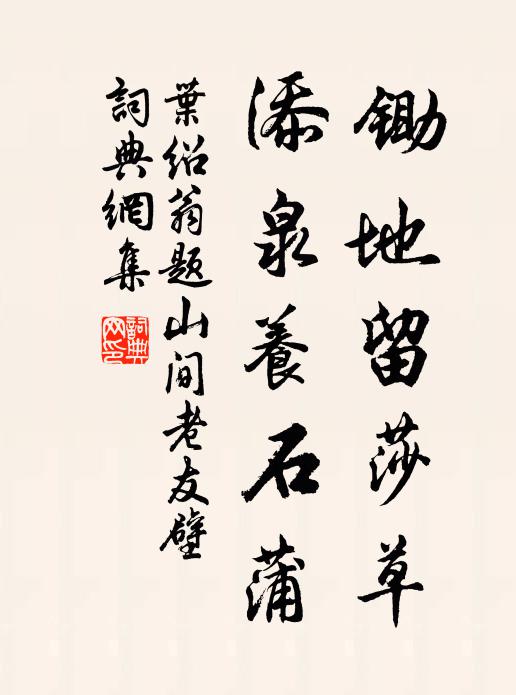 鋤地留莎草
添泉養石蒲
葉紹翁題山間老友壁
詞典網集
詞典網印